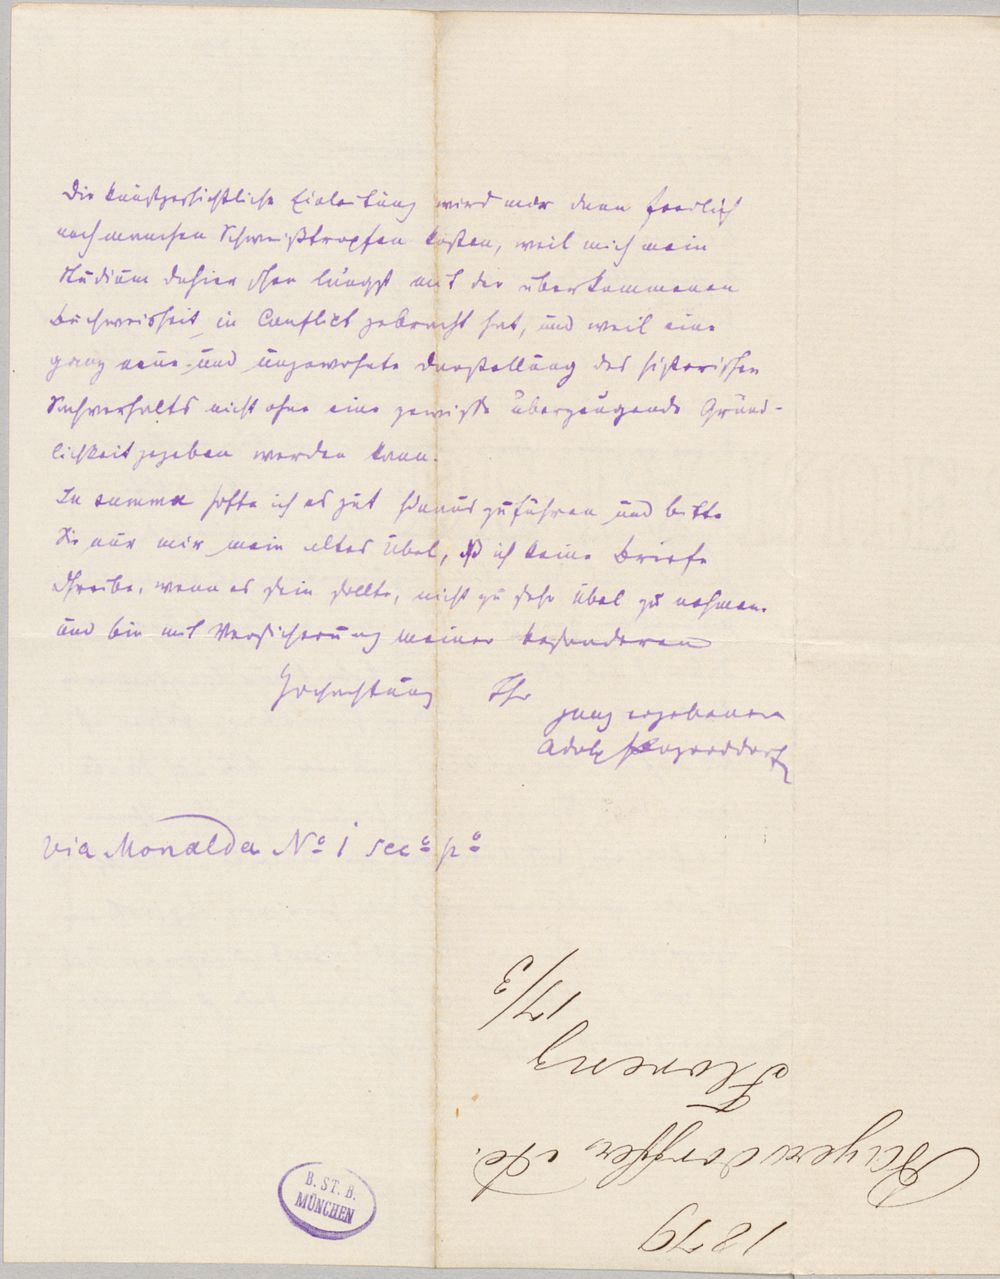 Die kunstgeschichtliche Einleitung wird mir denn freilich
noch manchen Schweißtropfen kosten, weil mich mein
Studium dahier schon längst mit der überkommenen
Buchweisheit in Conflict gebracht hat, und weil eine
ganz neue und ungewohnte Darstellung des historischen
Sachverhalts nicht ohne eine gewisse überzeugende Gründ-
lichkeit gegeben werden kann.
In summa hoffe ich es gut hinaus zu führen und bitte
Sie nur mir mein altes Übel, dß ich keine Briefe
schreibe, wenn es sein sollte, nicht zu sehr übel zu nehmen.
und bin mit Versicherung meiner besonderen
Hochachtung Ihr
ganz ergebener
Adolf Bayersdorfer
via Monalda No 1 seco po
1879
Bayersdorffer, Ad.
Florenz
17/3
B. ST. B.
MÜNCHEN